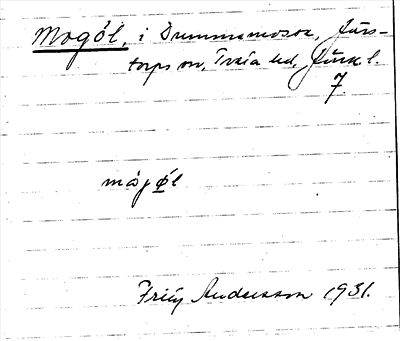 Mogól, i Dummemosse, Järs-
torps sn, Tveta hd, Jönk l.
7
mȧjǿl
Fritz Andersson 1931.